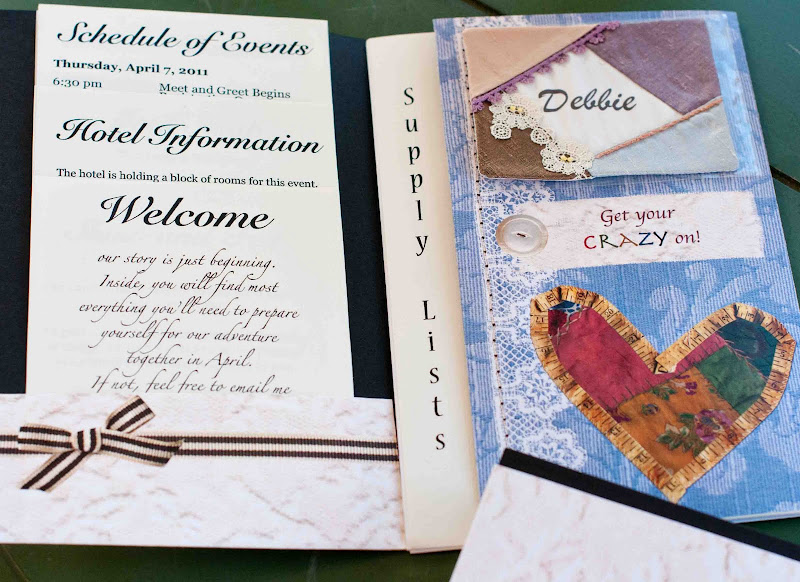 Schedule of Events
Thursday, April 7, 2011
6:30 pm Meet and Greet Begins
Hotel Information
The hotel is holding a block of rooms for this event.
Welcome
our story is just beginning.
Inside, you will find most
everything you'll need to prepare
yourself for our adventure
together in April.
If not, feel free to email me
Supply Lists
Debbie
Get your
CRAZY on!